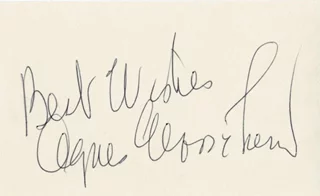 Best Wishes
Agnes Moorehead